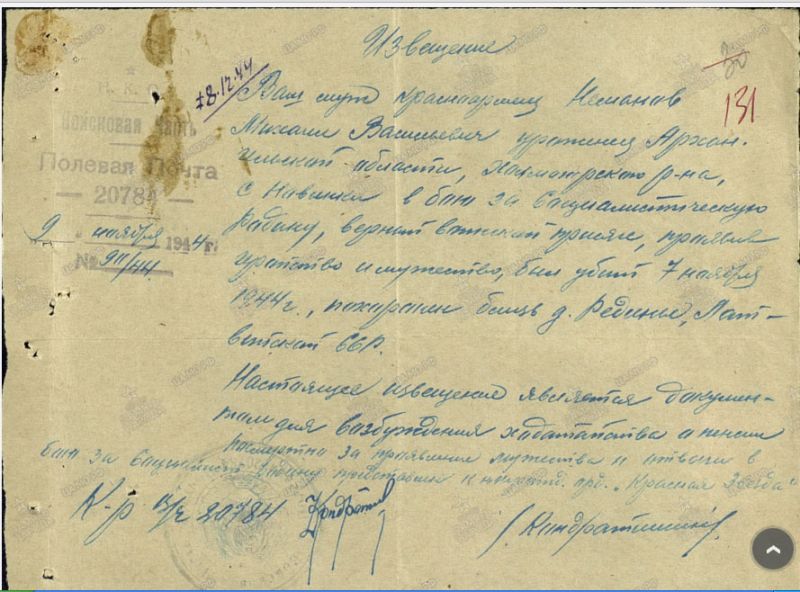 Извещение
+8.12.44
30
131
Н. К. О.
Войсковая часть
Полевая Почта
— 20784 —
9 ноября 1944 г.
№ 911/44
Ваш муж красноармеец Неманов
Михаил Васильевич уроженец Архан-
гельской области, Холмогорского р-на,
в бою за Социалистическую
Родину, верный воинской присяге, проявив
геройство и мужество, был убит 7 ноября
1944 г., похоронен близь д. Редини, Лат-
вийской ССР.
Настоящее извещение является докумен-
том для возбуждения ходатайства о пенсии
посмертно за проявление мужества и отваги в
бою за Социалист. Родину представлен к награжд. орд. „Красная Звезда"
К-р в/ч 20784